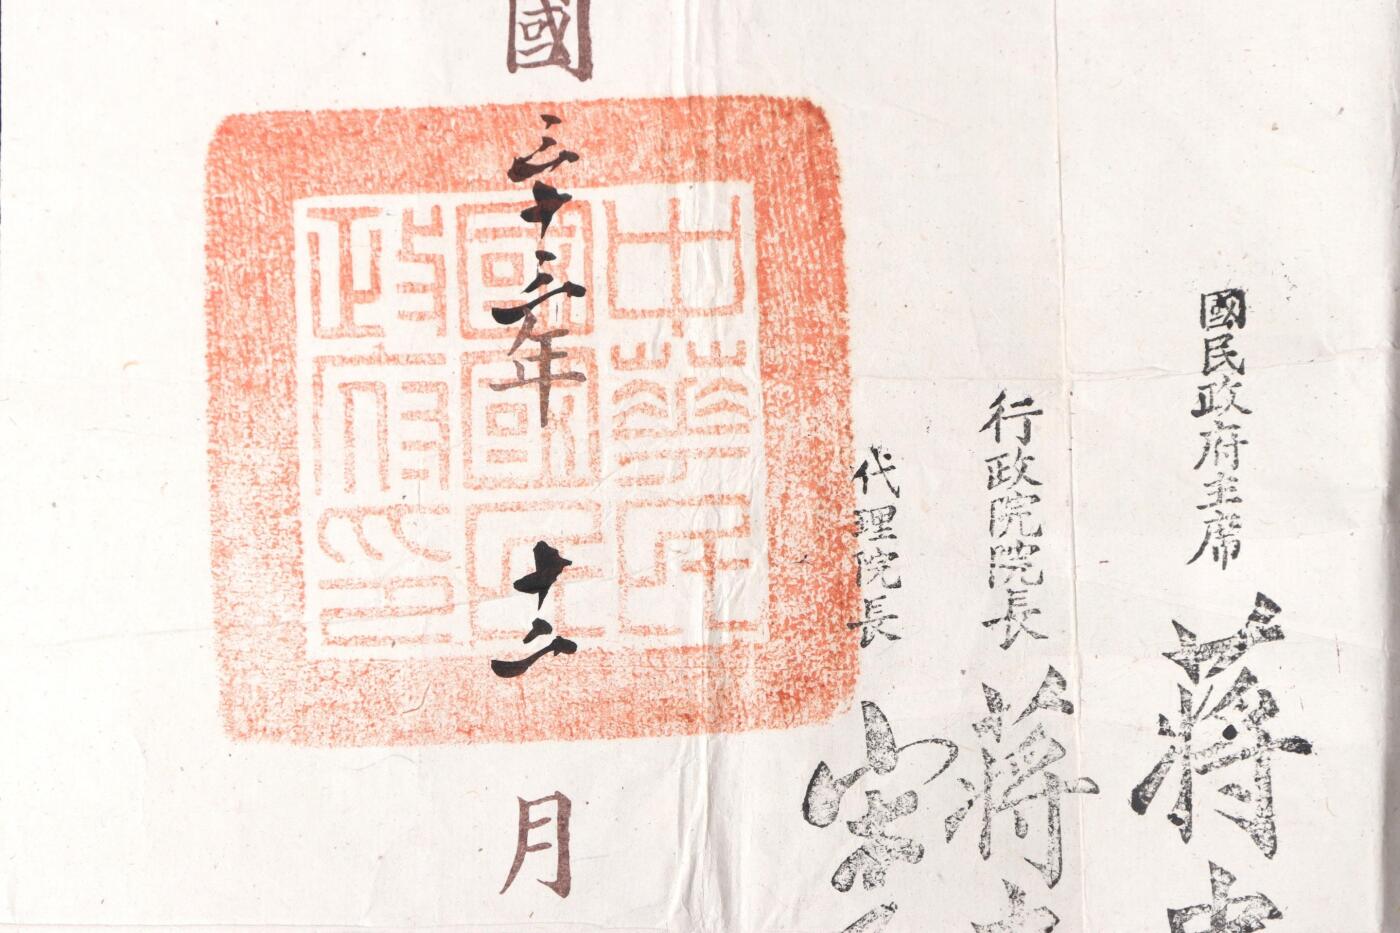 國民政府主席 蔣中
行政院院長 蔣中
代理院長 宋
中華民
國國民
政府印
國三十三年十二月